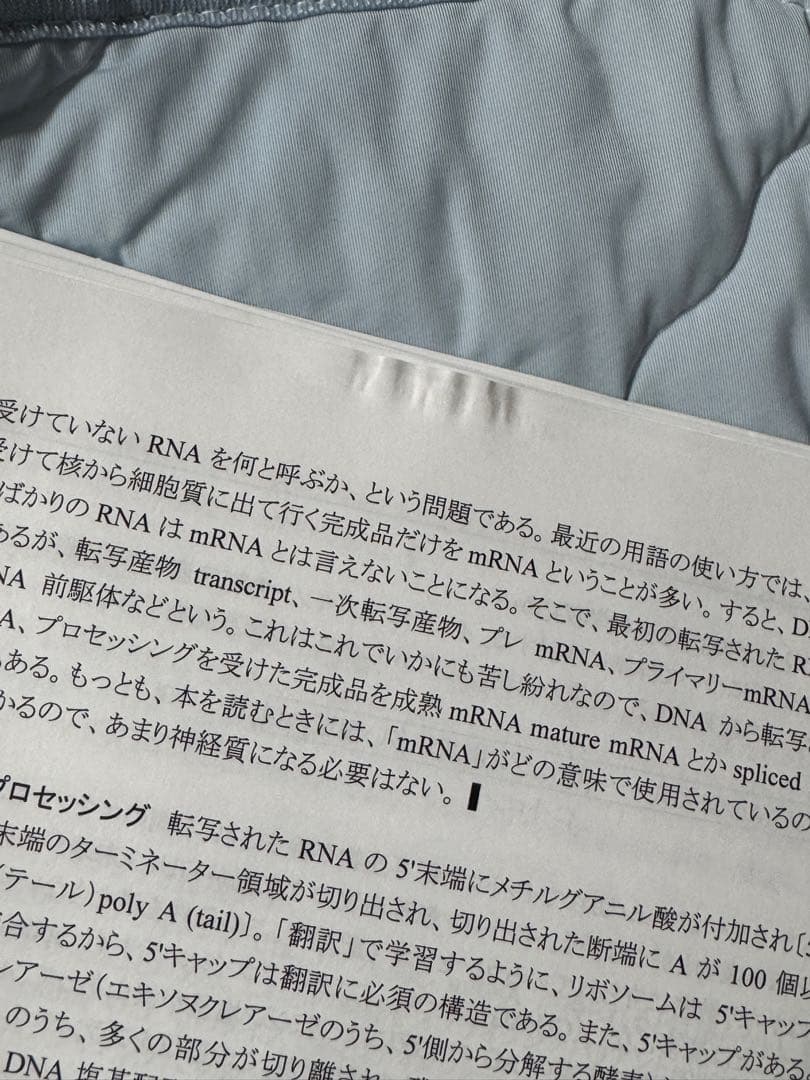 受けていない RNA を何と呼ぶか、という問題である。最近の用語の使い方では、
受けて核から細胞質に出て行く完成品だけを mRNA ということが多い。すると、D
ばかりの RNA は mRNA とは言えないことになる。そこで、最初の転写された R
あるが、転写産物 transcript、一次転写産物、プレ mRNA、プライマリーmRNA
NA 前駆体などという。これはこれでいかにも苦し紛れなので、DNA から転写
A、プロセッシングを受けた完成品を成熟 mRNA mature mRNA とか spliced
ある。もっとも、本を読むときには、「mRNA」がどの意味で使用されているの
かるので、あまり神経質になる必要はない。
プロセッシング 転写された RNA の 5'末端にメチルグアニル酸が付加され〔5
末端のターミネーター領域が切り出され、切り出された断端に A が 100 個
テール)poly A (tail)〕。「翻訳」で学習するように、リボソームは 5'キャップ
合するから、5'キャップは翻訳に必須の構造である。また、5'キャップがある
レアーゼ(エキソヌクレアーゼのうち、5'側から分解する酵素)
のうち、多くの部分が切り離され、
DNA 塩基配